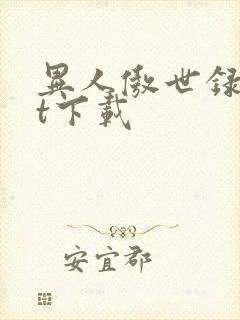 異人傲世録
t下載
安宜郡